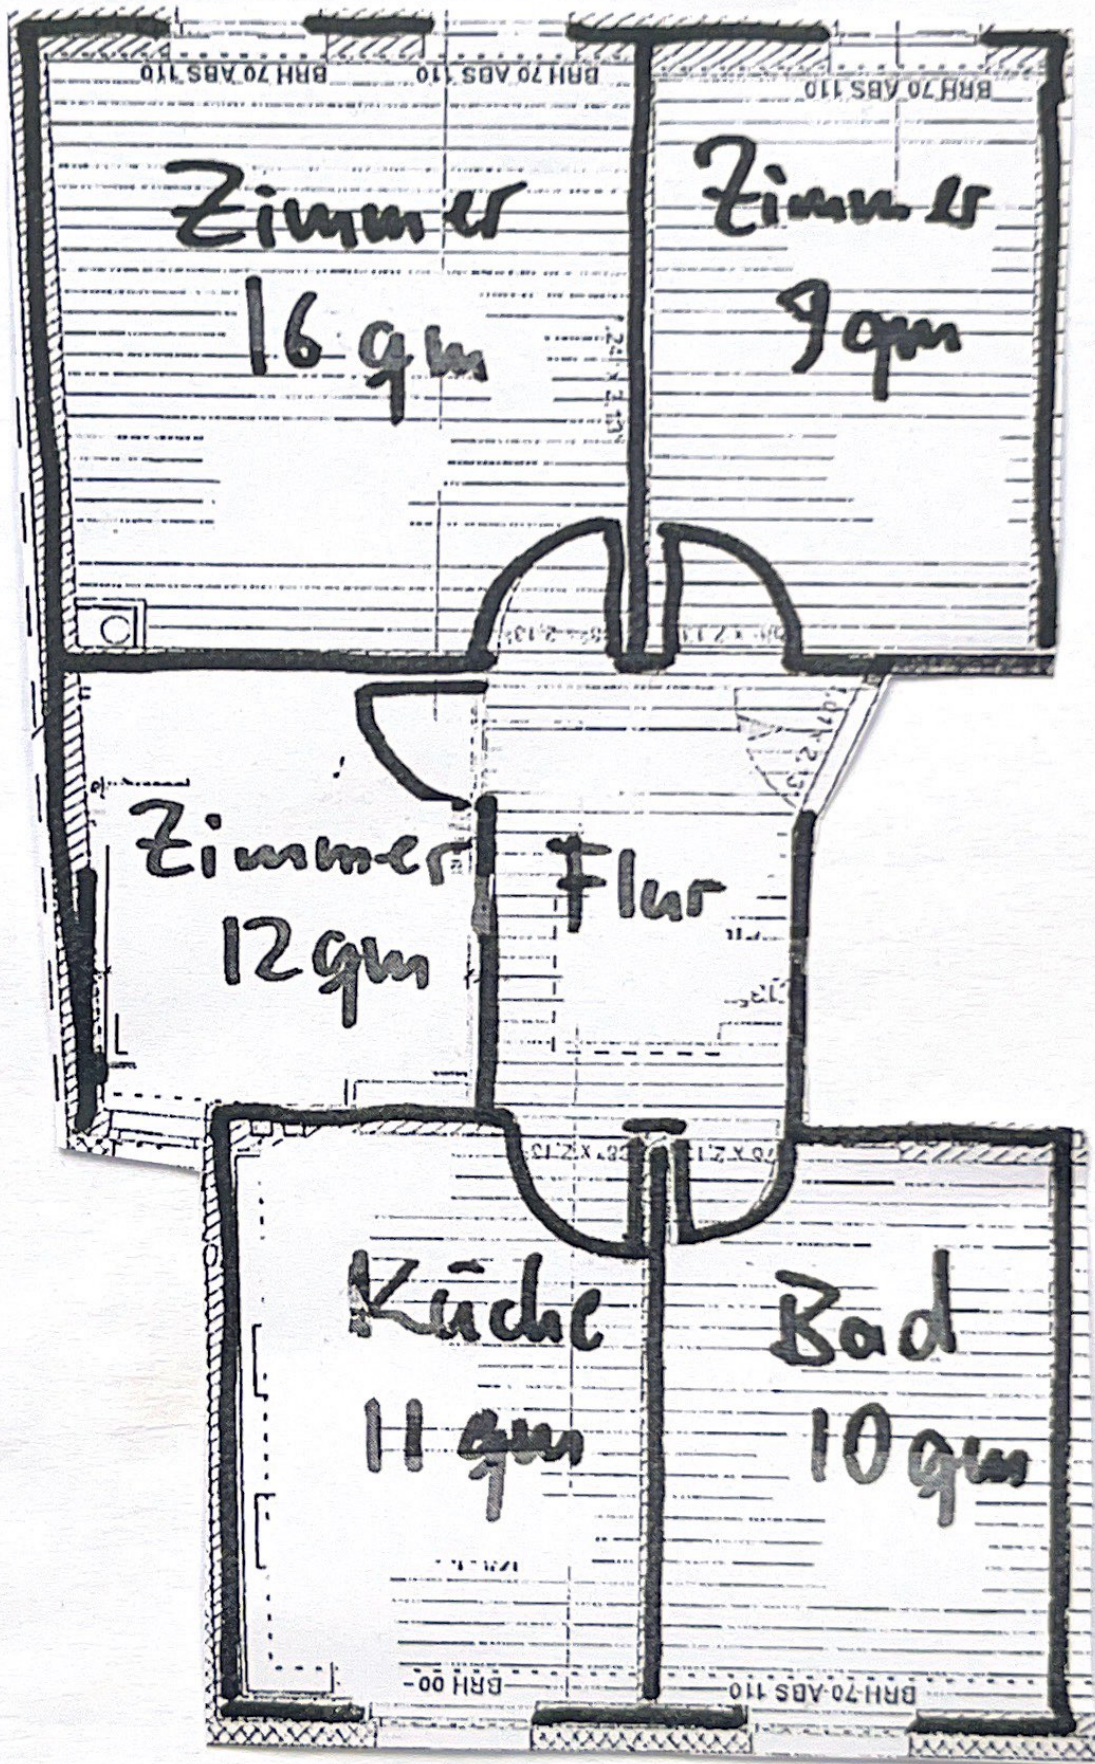 BRH 70 ABS 110
BRH 70 ABS 110
BRH 70 ABS 110
Zimmer
16 qm
Zimmer
9 qm
Zimmer
12 qm
Flur
Küche
11 qm
Bad
10 qm
BRH 00
BRH 70 ABS 110